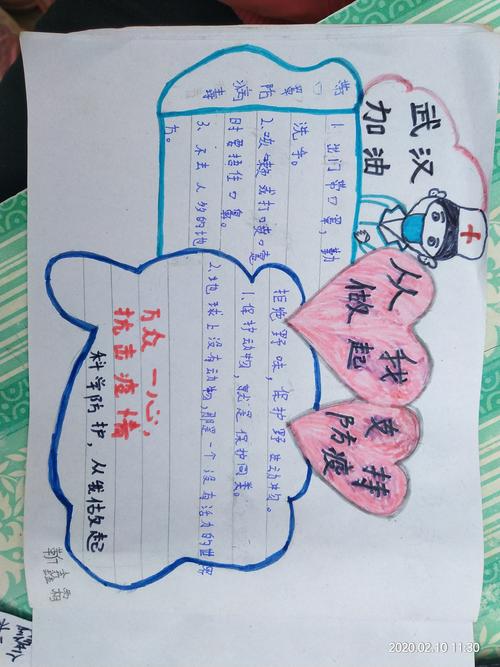 武汉
加油
从我
做起
支持
防疫
带口罩防病毒
1.出门带口罩,勤
洗手。
2.咳嗽或打喷嚏
时要捂住口鼻。
3、不去人多的地
方。
拒绝野味,保护野生动物。
1.保护动物,就是保护同类。
2.地球上没有动物,那是一个没有活力的世界
万众一心,
抗击疫情
科学防护,从我做起
2020.02.10 11:30